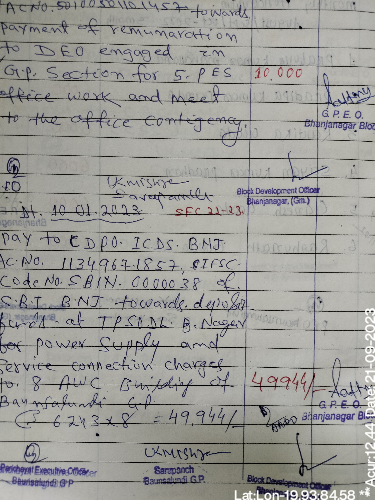 A/C No. 50100301101457 towards
payment of remunaration
to DEO engaged in
G.P. Section for 5. PES 10,000
office work and meet
to the office contigency.
G. P. E. O.
Bhanjanagar Bloc
Block Development Officer
Bhanjanagar, (Gm.)
Dt. 10-01.2023 SFC 22-23
pay to CDPO. ICDS. BNJ
Ac. No. 11349671857, IFSC.
Code No. SBIN. 0000038 of
S.B.I. BNJ. towards deposit
at TPSODL. B. Nagar
for power Supply and
Service connection charges
to 8 AWC Building of 49944/-
Baunsalundi GP.
G. P. E. O.
Bhanjanagar Bloc
@ 6243 x 8 = 49,944/-
Panchayat Executive Officer
Baunsalundi G P
Sarapanch
Baunsalundi G.P.
Block Development Officer
Bhanjanagar
Lat:Lon-19.93:84.58 ** Acur:12.44 Date:21-09-2023